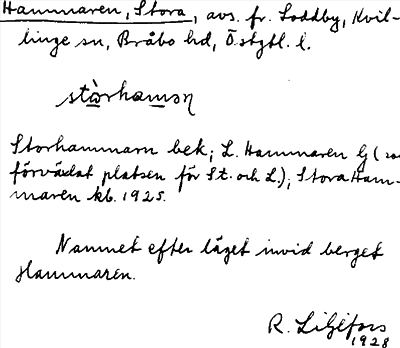 Hammaren, Stora, avs. fr. Loddby, Kvil-
linge sn, Bråbo hd, Östgtl. l.
Storhammarn bek; L. Hammaren Gj (
förväxlat platsen för St. och L.); Stora Ham-
maren kb. 1925.
Namnet efter läget invid berget
Hammaren.
R. Liljefors
1928